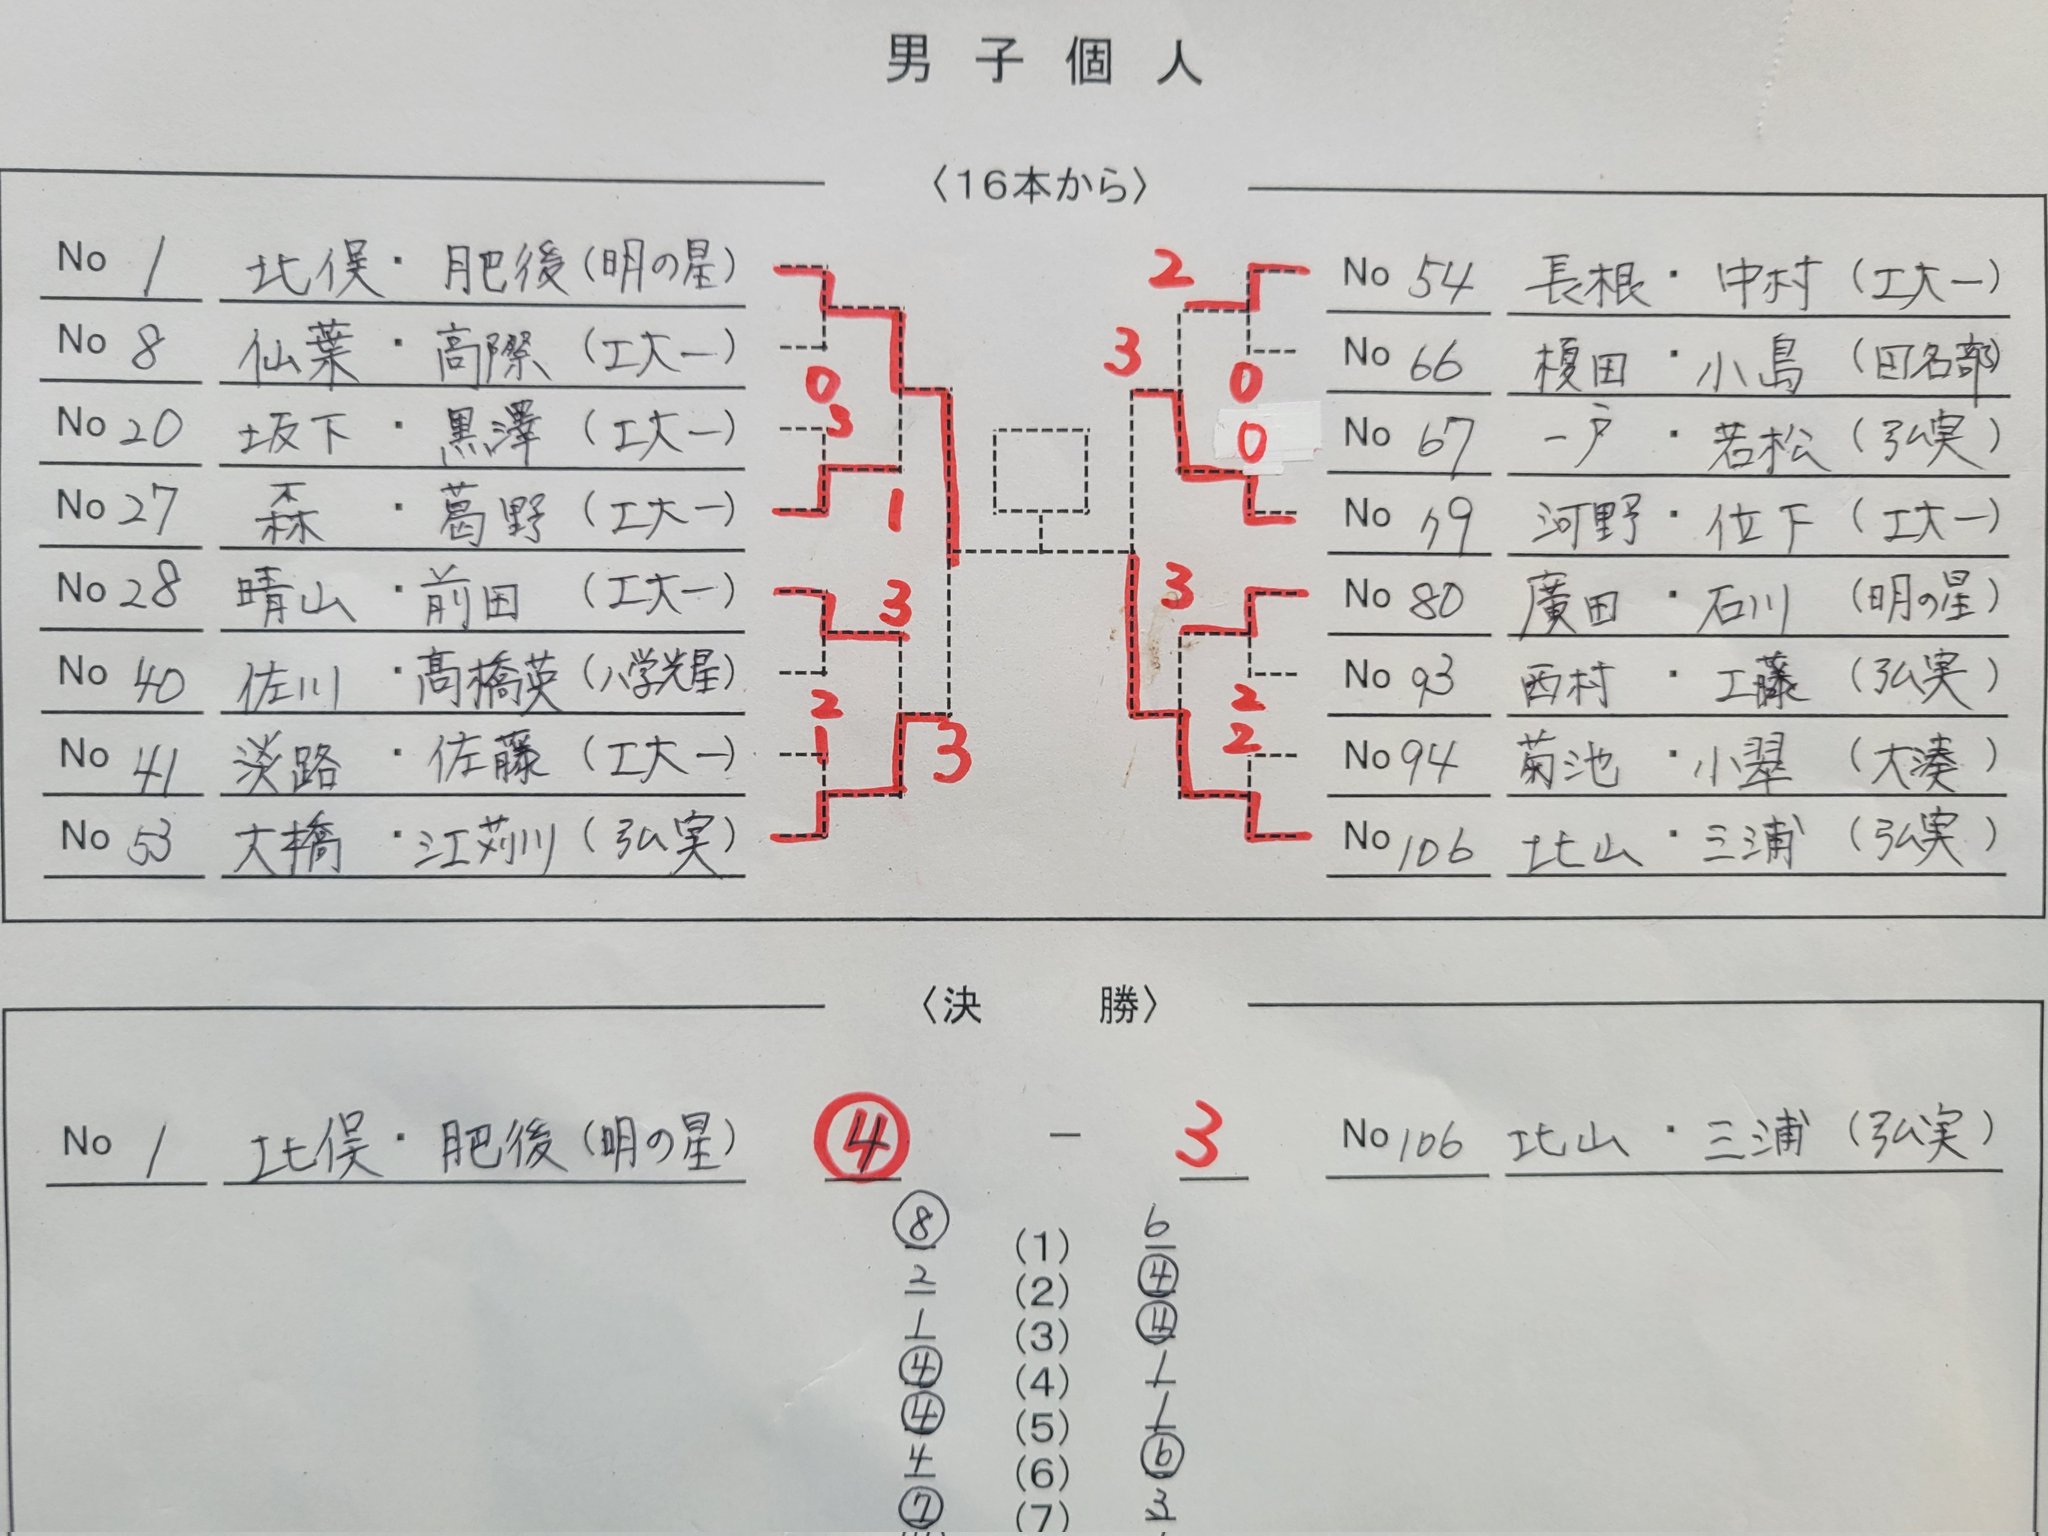 男子個人
〈16本から〉
No 1 北俣・肥後(明の星)
No 8 仙葉・高際(工大一)
No 20 坂下・黒澤(工大一)
No 27 森・葛野(工大一)
No 28 晴山・前田(工大一)
No 40 佐川・高橋英(八学光星)
No 41 淡路・佐藤(工大一)
No 53 大橋・江苅川(弘実)
0
3
1
3
2
1
3
2
3
0
0
3
2
2
No 54 長根・中村(工大一)
No 66 榎田・小島(田名部)
No 67 一戸・若松(弘実)
No 79 河野・位下(工大一)
No 80 廣田・石川(明の星)
No 93 西村・工藤(弘実)
No 94 菊池・小翠(大湊)
No 106 北山・三浦(弘実)
〈決勝〉
No 1 北俣・肥後(明の星) ④ － 3 No 106 北山・三浦(弘実)
⑧ (1) 6
2 (2) ④
1 (3) ④
④ (4) 1
④ (5) 1
4 (6) ⑥
⑦ (7) 3